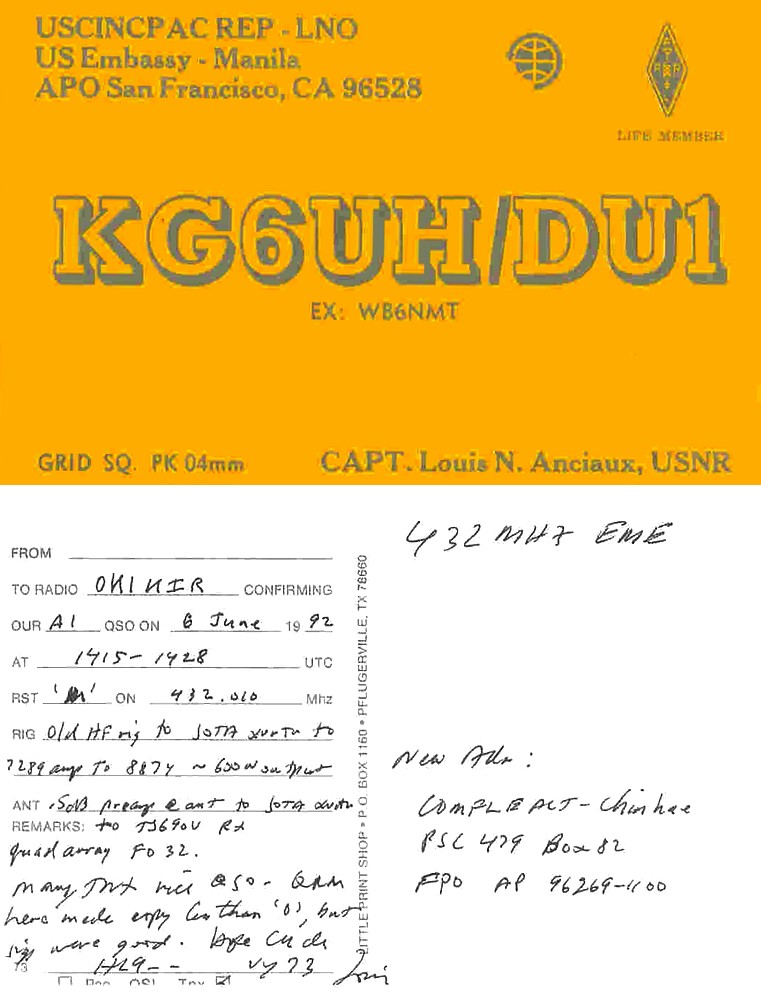 USCINCPAC REP - LNO
US Embassy - Manila
APO San Francisco, CA 96528
LIFE MEMBER
KG6UH/DU1
EX: WB6NMT
GRID SQ. PK 04mm
CAPT. Louis N. Anciaux, USNR
432 MHz EME
FROM
TO RADIO OK1KIR CONFIRMING
OUR A1 QSO ON 6 June 19 92
AT 1415 - 1428 UTC
RST 'M' ON 432.010 Mhz
RIG Old HF rig to JOTA xvrtr to
7289 amp To 8874 ~ 600W output
ANT .5dB preamp @ ant to JOTA xvrtr
REMARKS: to TS690V RX
quad array FO 32.
Many TNX nice QSO - QRM
here made copy less than 'O', but
sigs were good. Hope CU de
73 HL9-- VY 73 Lou
Pse QSL Tnx
LITTLE PRINT SHOP • P.O. BOX 1160 • PFLUGERVILLE, TX 78660
New Adr:
COMFLEACT - Chinhae
PSC 479 Box 82
FPO AP 96269-1100